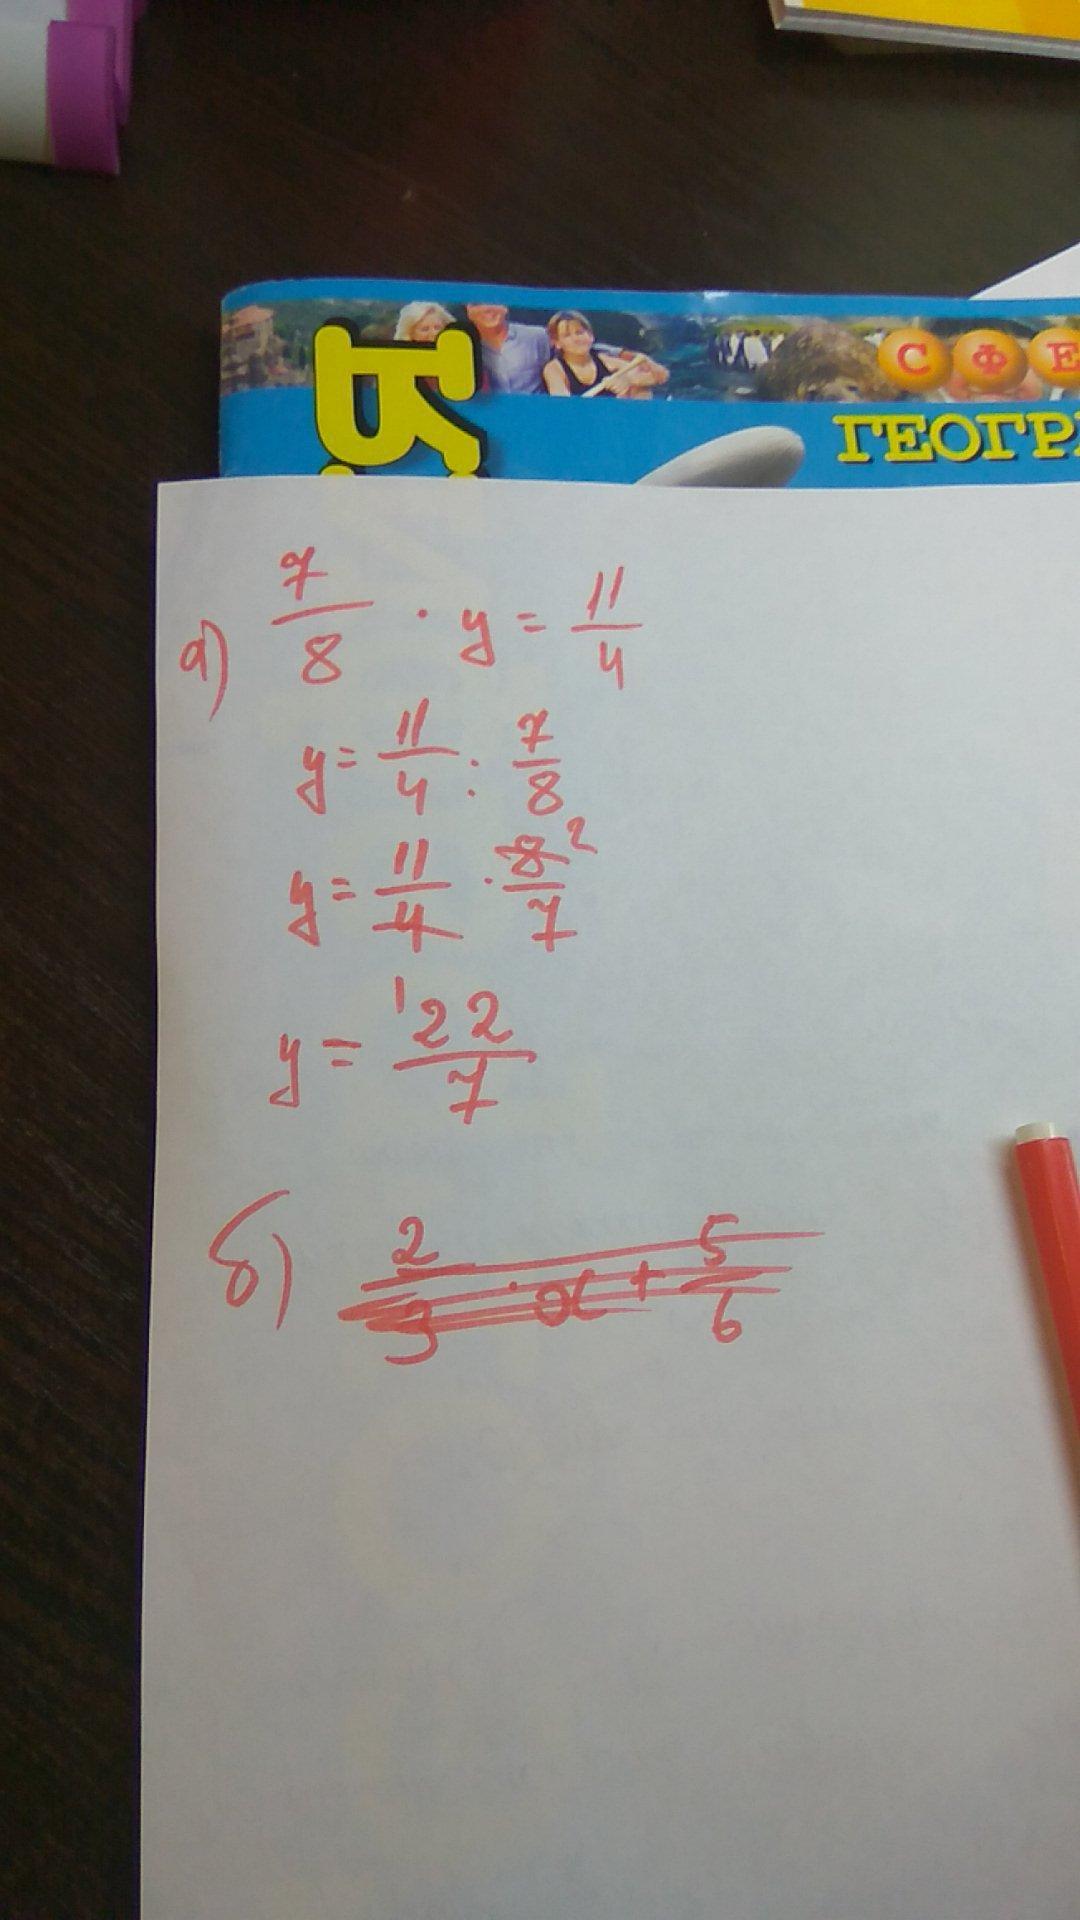 СФЕ
ГЕОГР
а) 7/8 · y = 11/4
y = 11/4 : 7/8
y = 11/4 · 8/7 2
1
y = 22/7
б) 2/3 · x + 5/6